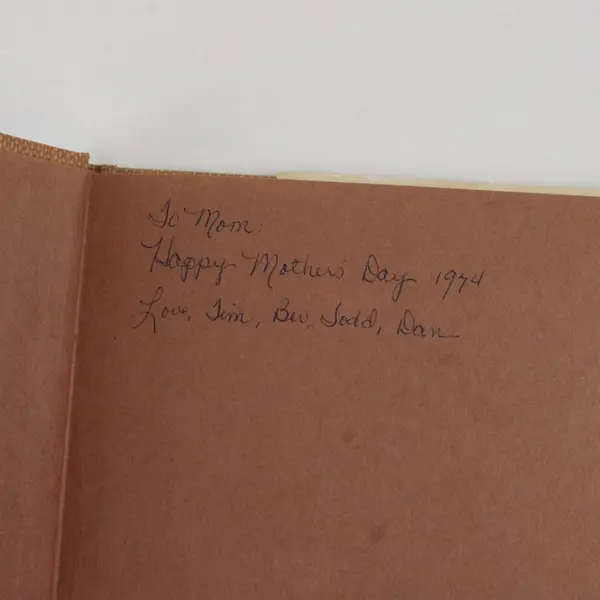 To Mom:
Happy Mothers Day 1974
Love, Tim, Bev, Todd, Dan